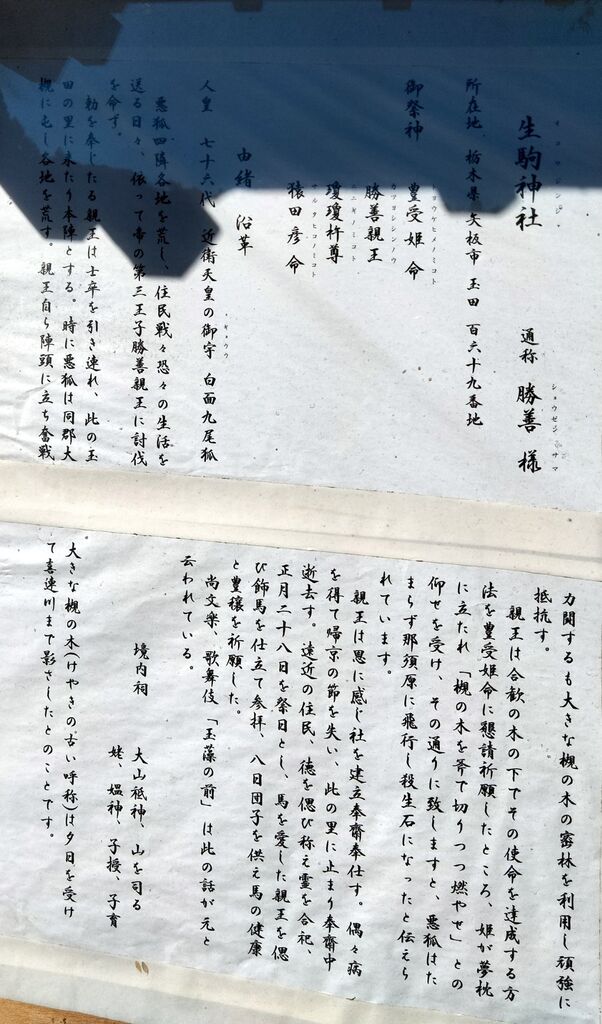 イコマジンジャ
生駒神社　通称　勝善様
ショウゼンサマ
所在地、栃木県矢板市玉田百六十九番地
御祭神　豊受姫命
トヨウケヒメノミコト
勝善親王
カツヨシシンノウ
瓊瓊杵尊
ニニギノミコト
猿田彦命
サルタヒコノミコト
由緒　沿革
人皇　七十六代　近衛天皇の御宇　白面九尾狐
悪狐四隣各地を荒し、住民戦々恐々の生活を
送る日々、依って帝の第三王子勝善親王に討伐
を命ず。
勅を奉じたる親王は士卒を引き連れ、此の玉
田の里に来たり本陣とする。時に悪狐は同郡大
槻に屯し各地を荒す。親王自ら陣頭に立ち奮戦
力闘するも大きな槻の木の密林を利用し頑強に
抵抗す。
親王は合歓の木の下でその使命を達成する方
法を豊受姫命に懇請祈願したところ、姫が夢枕
に立たれ「槻の木を斧で切りつつ燃やせ」との
仰せを受け、その通りに致しますと、悪狐はた
まらず那須原に飛行し殺生石になったと伝えら
れています。
親王は恩に感じ社を建立奉齋奉仕す。偶々病
を得て帰京の節を失い、此の里に止まり奉齋中
逝去す。遠近の住民、徳を偲び称え霊を合祀、
正月二十八日を祭日とし、馬を愛した親王を偲
び飾馬を仕立て参拝、八日団子を供え馬の健康
と豊穣を祈願した。
尚文楽、歌舞伎「玉藻の前」は此の話が元と
云われている。
境内祠　大山祇神、山を司る
姥、媼神、子授、子育
大きな槻の木(けやきの古い呼称)は夕日を受け
て喜連川まで影さしたとのことです。